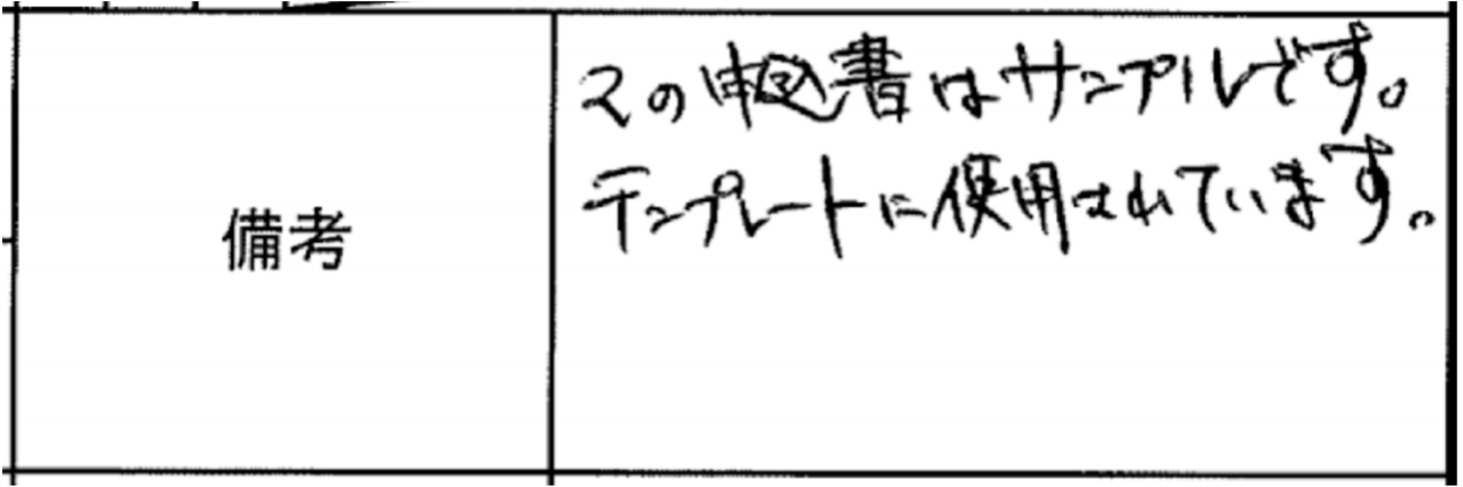 備考
この申込書はサンプルです。
テンプレートに使用されています。